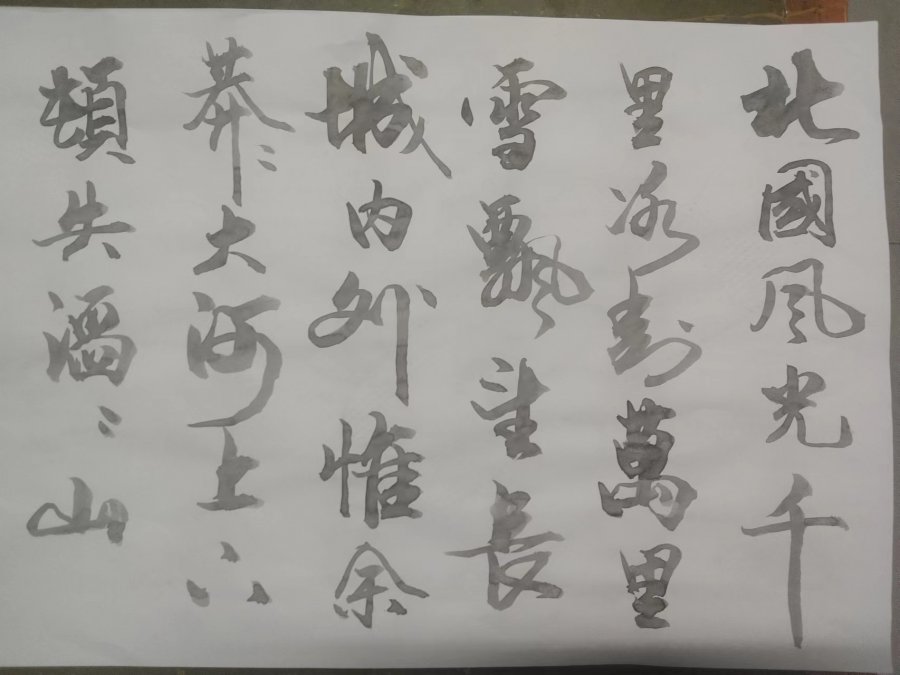 北國風光千
里冰封萬里
雪飄望長
城内外惟余
莽〻大河上下
頓失滔〻山